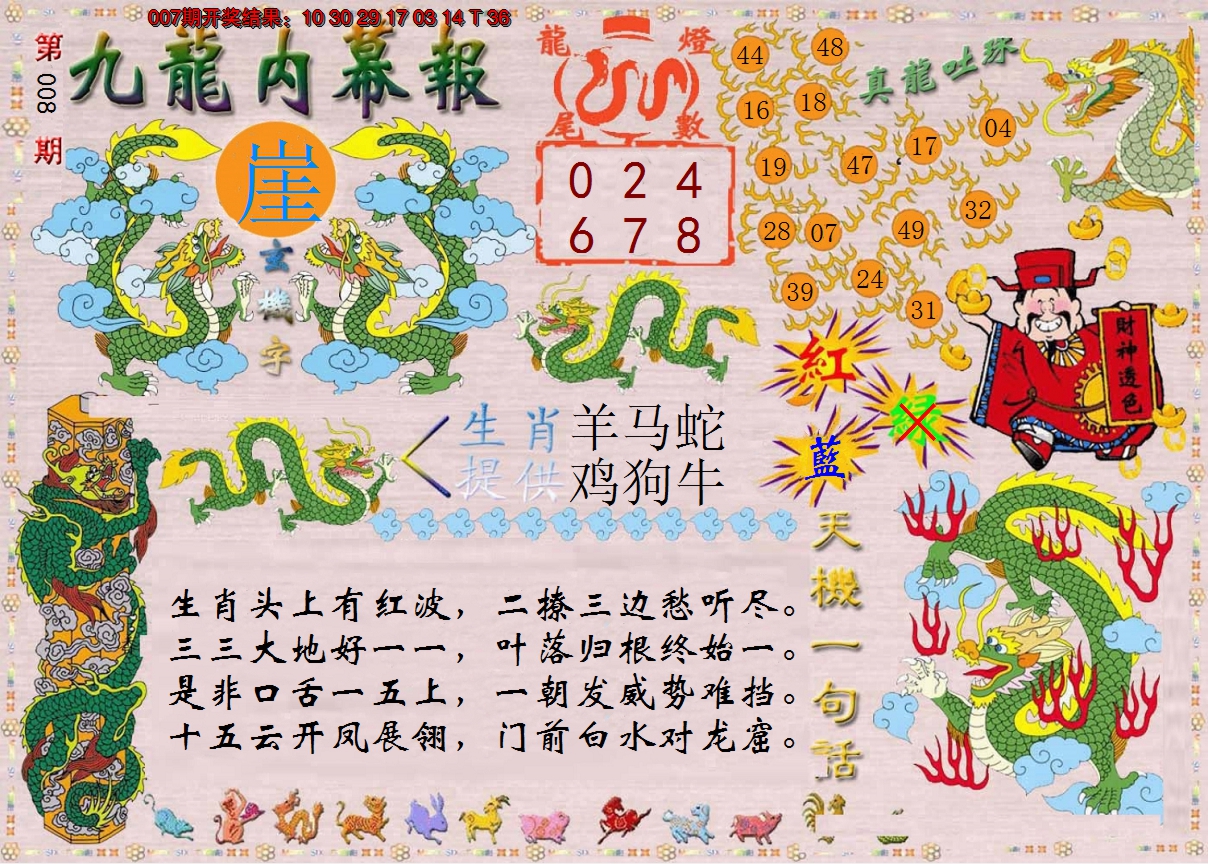 007期开奖结果：10 30 29 17 03 14 T 36
第
008
期
九龍内幕報
崖
玄
機
字
龍
燈
尾
數
0 2 4
6 7 8
真龍吐珠
44
48
16
18
17
04
19
47
32
28
07
49
39
24
31
財神透色
紅
绿
藍
生肖
提供
羊马蛇
鸡狗牛
天機一句話
生肖头上有红波，二撩三边愁听尽。
三三大地好一一，叶落归根终始一。
是非口舌一五上，一朝发威势难挡。
十五云开凤展翎，门前白水对龙窟。